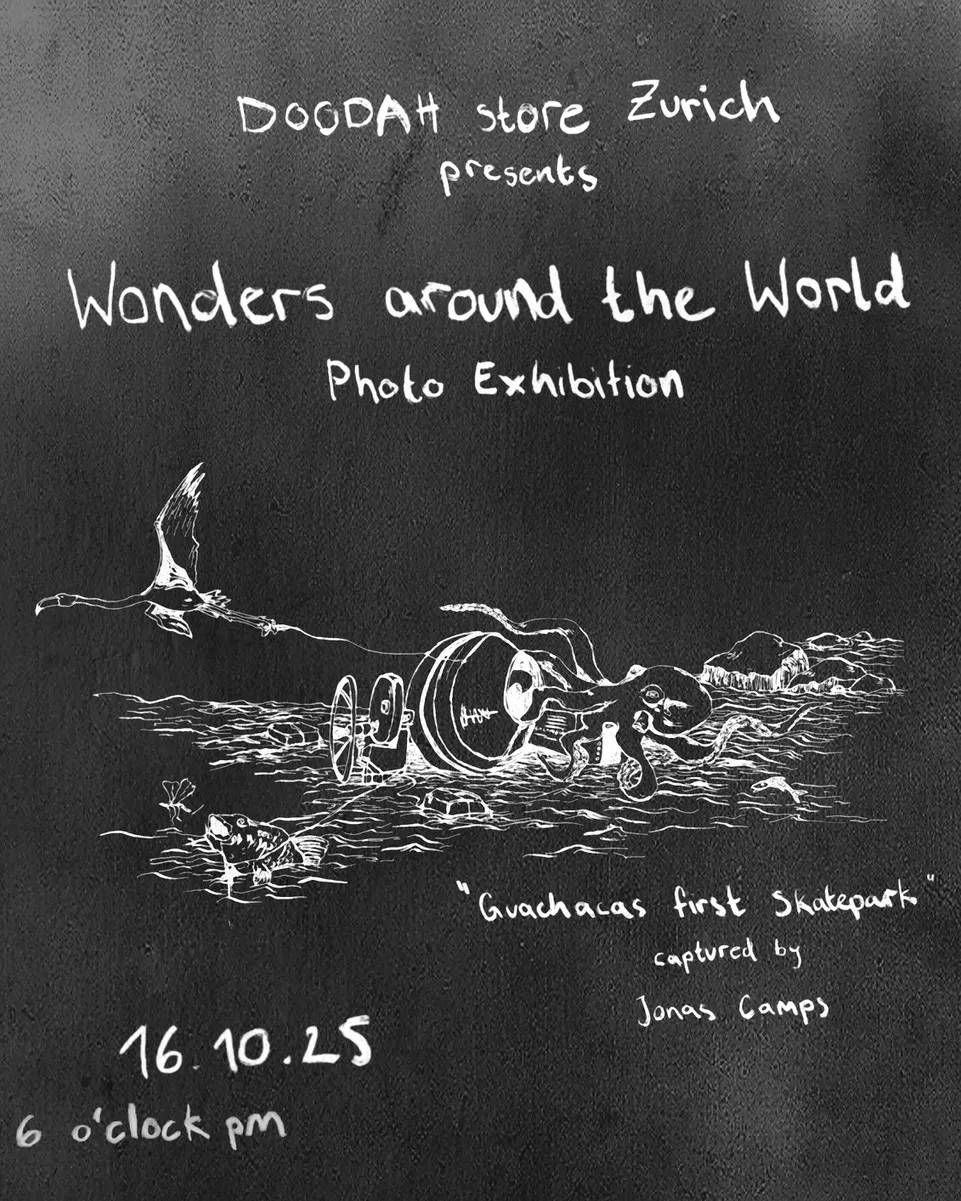 DOODAH store Zurich
presents
Wonders around the World
Photo Exhibition
"Guachacas first Skatepark"
captured by
Jonas Camps
16.10.25
6 o'clock pm